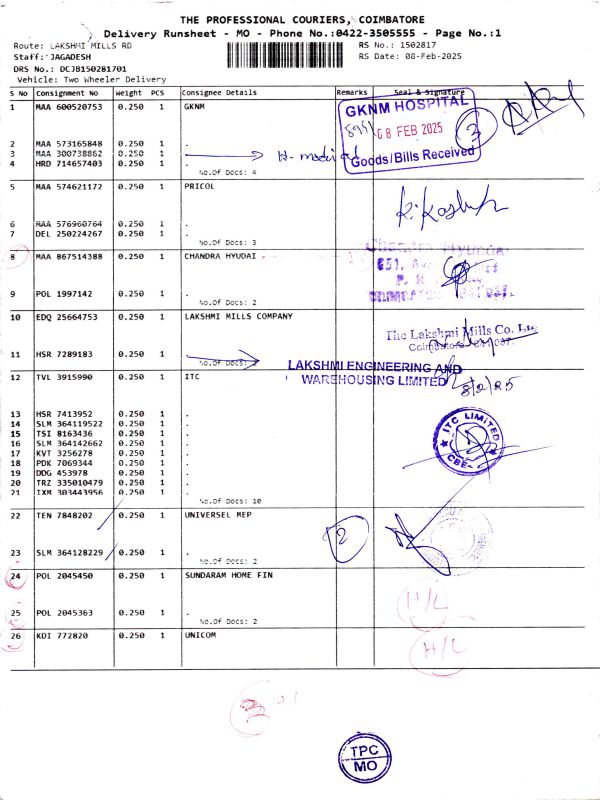 THE PROFESSIONAL COURIERS, COIMBATORE
Delivery Runsheet - MO - Phone No.:0422-3505555 - Page No.:1
Route: LAKSHMI MILLS RD
RS No.: 1502817
Staff: JAGADESH
RS Date: 08-Feb-2025
DRS No.: DCJB150281701
Vehicle: Two Wheeler Delivery
S No Consignment No Weight PCS Consignee Details Remarks Seal & Signature
1 MAA 600520753 0.250 1 GKNM
GKNM HOSPITAL
08 FEB 2025
Goods/Bills Received
3
2 MAA 573165848 0.250 1 .
3 MAA 300738862 0.250 1 .
4 HRD 714657403 0.250 1 .
No.Of Docs: 4
5 MAA 574621172 0.250 1 PRICOL
6 MAA 576960764 0.250 1 .
7 DEL 250224267 0.250 1 .
No.Of Docs: 3
8 MAA 867514388 0.250 1 CHANDRA HYUDAI
9 POL 1997142 0.250 1 .
No.Of Docs: 2
10 EDQ 25664753 0.250 1 LAKSHMI MILLS COMPANY
The Lakshmi Mills Co. Ltd
11 HSR 7289183 0.250 1 .
No.Of Docs: 2
LAKSHMI ENGINEERING AND
WAREHOUSING LIMITED
8/2/25
12 TVL 3915990 0.250 1 ITC
13 HSR 7413952 0.250 1 .
14 SLM 364119522 0.250 1 .
15 TSI 8163436 0.250 1 .
16 SLM 364142662 0.250 1 .
17 KVT 3256278 0.250 1 .
18 PDK 7069344 0.250 1 .
19 DDG 453978 0.250 1 .
20 TRZ 335010479 0.250 1 .
21 TXM 303443956 0.250 1 .
No.Of Docs: 10
ITC LIMITED
CBE-
22 TEN 7848202 0.250 1 UNIVERSEL MEP
2
23 SLM 364128229 0.250 1 .
No.Of Docs: 2
24 POL 2045450 0.250 1 SUNDARAM HOME FIN
H/L
25 POL 2045363 0.250 1 .
No.Of Docs: 2
26 KDI 772820 0.250 1 UNICOM
H/L
TPC
MO